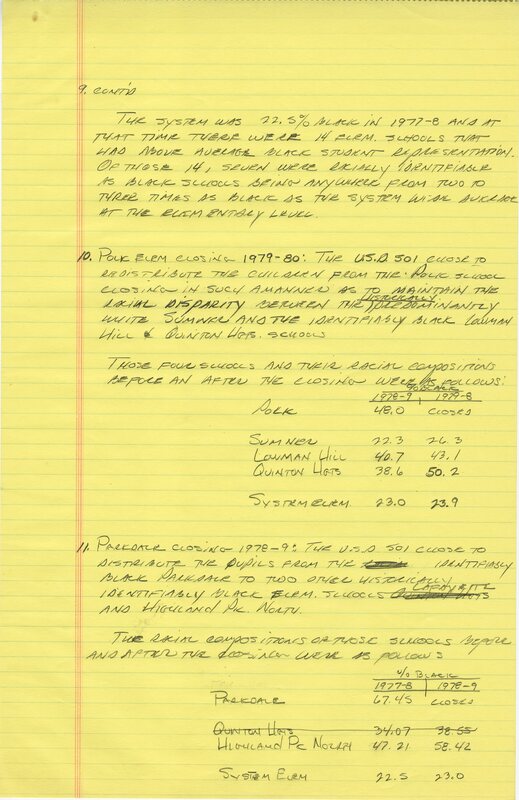 9. CONT'D
THE SYSTEM WAS 22.5% BLACK IN 1977-8 AND AT
THAT TIME THERE WERE 14 ELEM. SCHOOLS THAT
HAD ABOVE AVERAGE BLACK STUDENT REPRESENTATION.
OF THOSE 14, SEVEN WERE RACIALLY IDENTIFIABLE
AS BLACK SCHOOLS BEING ANYWHERE FROM TWO TO
THREE TIMES AS BLACK AS THE SYSTEM WIDE AVERAGE
AT THE ELEMENTARY LEVEL.
10. POLK ELEM CLOSING 1979-80: THE U.S.D. 501 CHOSE TO
REDISTRIBUTE THE CHILDREN FROM THE POLK SCHOOL
CLOSING IN SUCH A MANNER AS TO MAINTAIN THE
RACIAL DISPARITY BETWEEN THE HISTORICALLY PREDOMINANTLY
WHITE SUMNER AND THE IDENTIFIABLY BLACK LOWMAN
HILL & QUINTON HGTS. SCHOOLS
THOSE FOUR SCHOOLS AND THEIR RACIAL COMPOSITIONS
BEFORE AN AFTER THE CLOSING WERE AS FOLLOWS:
% BLACK
1978-9 1979-8
POLK 48.0 CLOSED
SUMNER 22.3 26.3
LOWMAN HILL 40.7 43.1
QUINTON HGTS 38.6 50.2
SYSTEM ELEM. 23.0 23.9
11. PARKDALE CLOSING 1978-9: THE U.S.D. 501 CHOSE TO
DISTRIBUTE THE PUPILS FROM THE IDENTIFIABLY
BLACK PARKDALE TO TWO OTHER HISTORICALLY
IDENTIFIABLY BLACK ELEM. SCHOOLS LAFAYETTE
AND HIGHLAND PK. NORTH.
THE RACIAL COMPOSITIONS OF THOSE SCHOOLS BEFORE
AND AFTER THE CLOSING WERE AS FOLLOWS
% BLACK
1977-8 1978-9
PARKDALE 67.45 CLOSED
QUINTON HGTS 34.07 38.55
HIGHLAND PK NORTH 47.21 58.42
SYSTEM ELEM 22.5 23.0